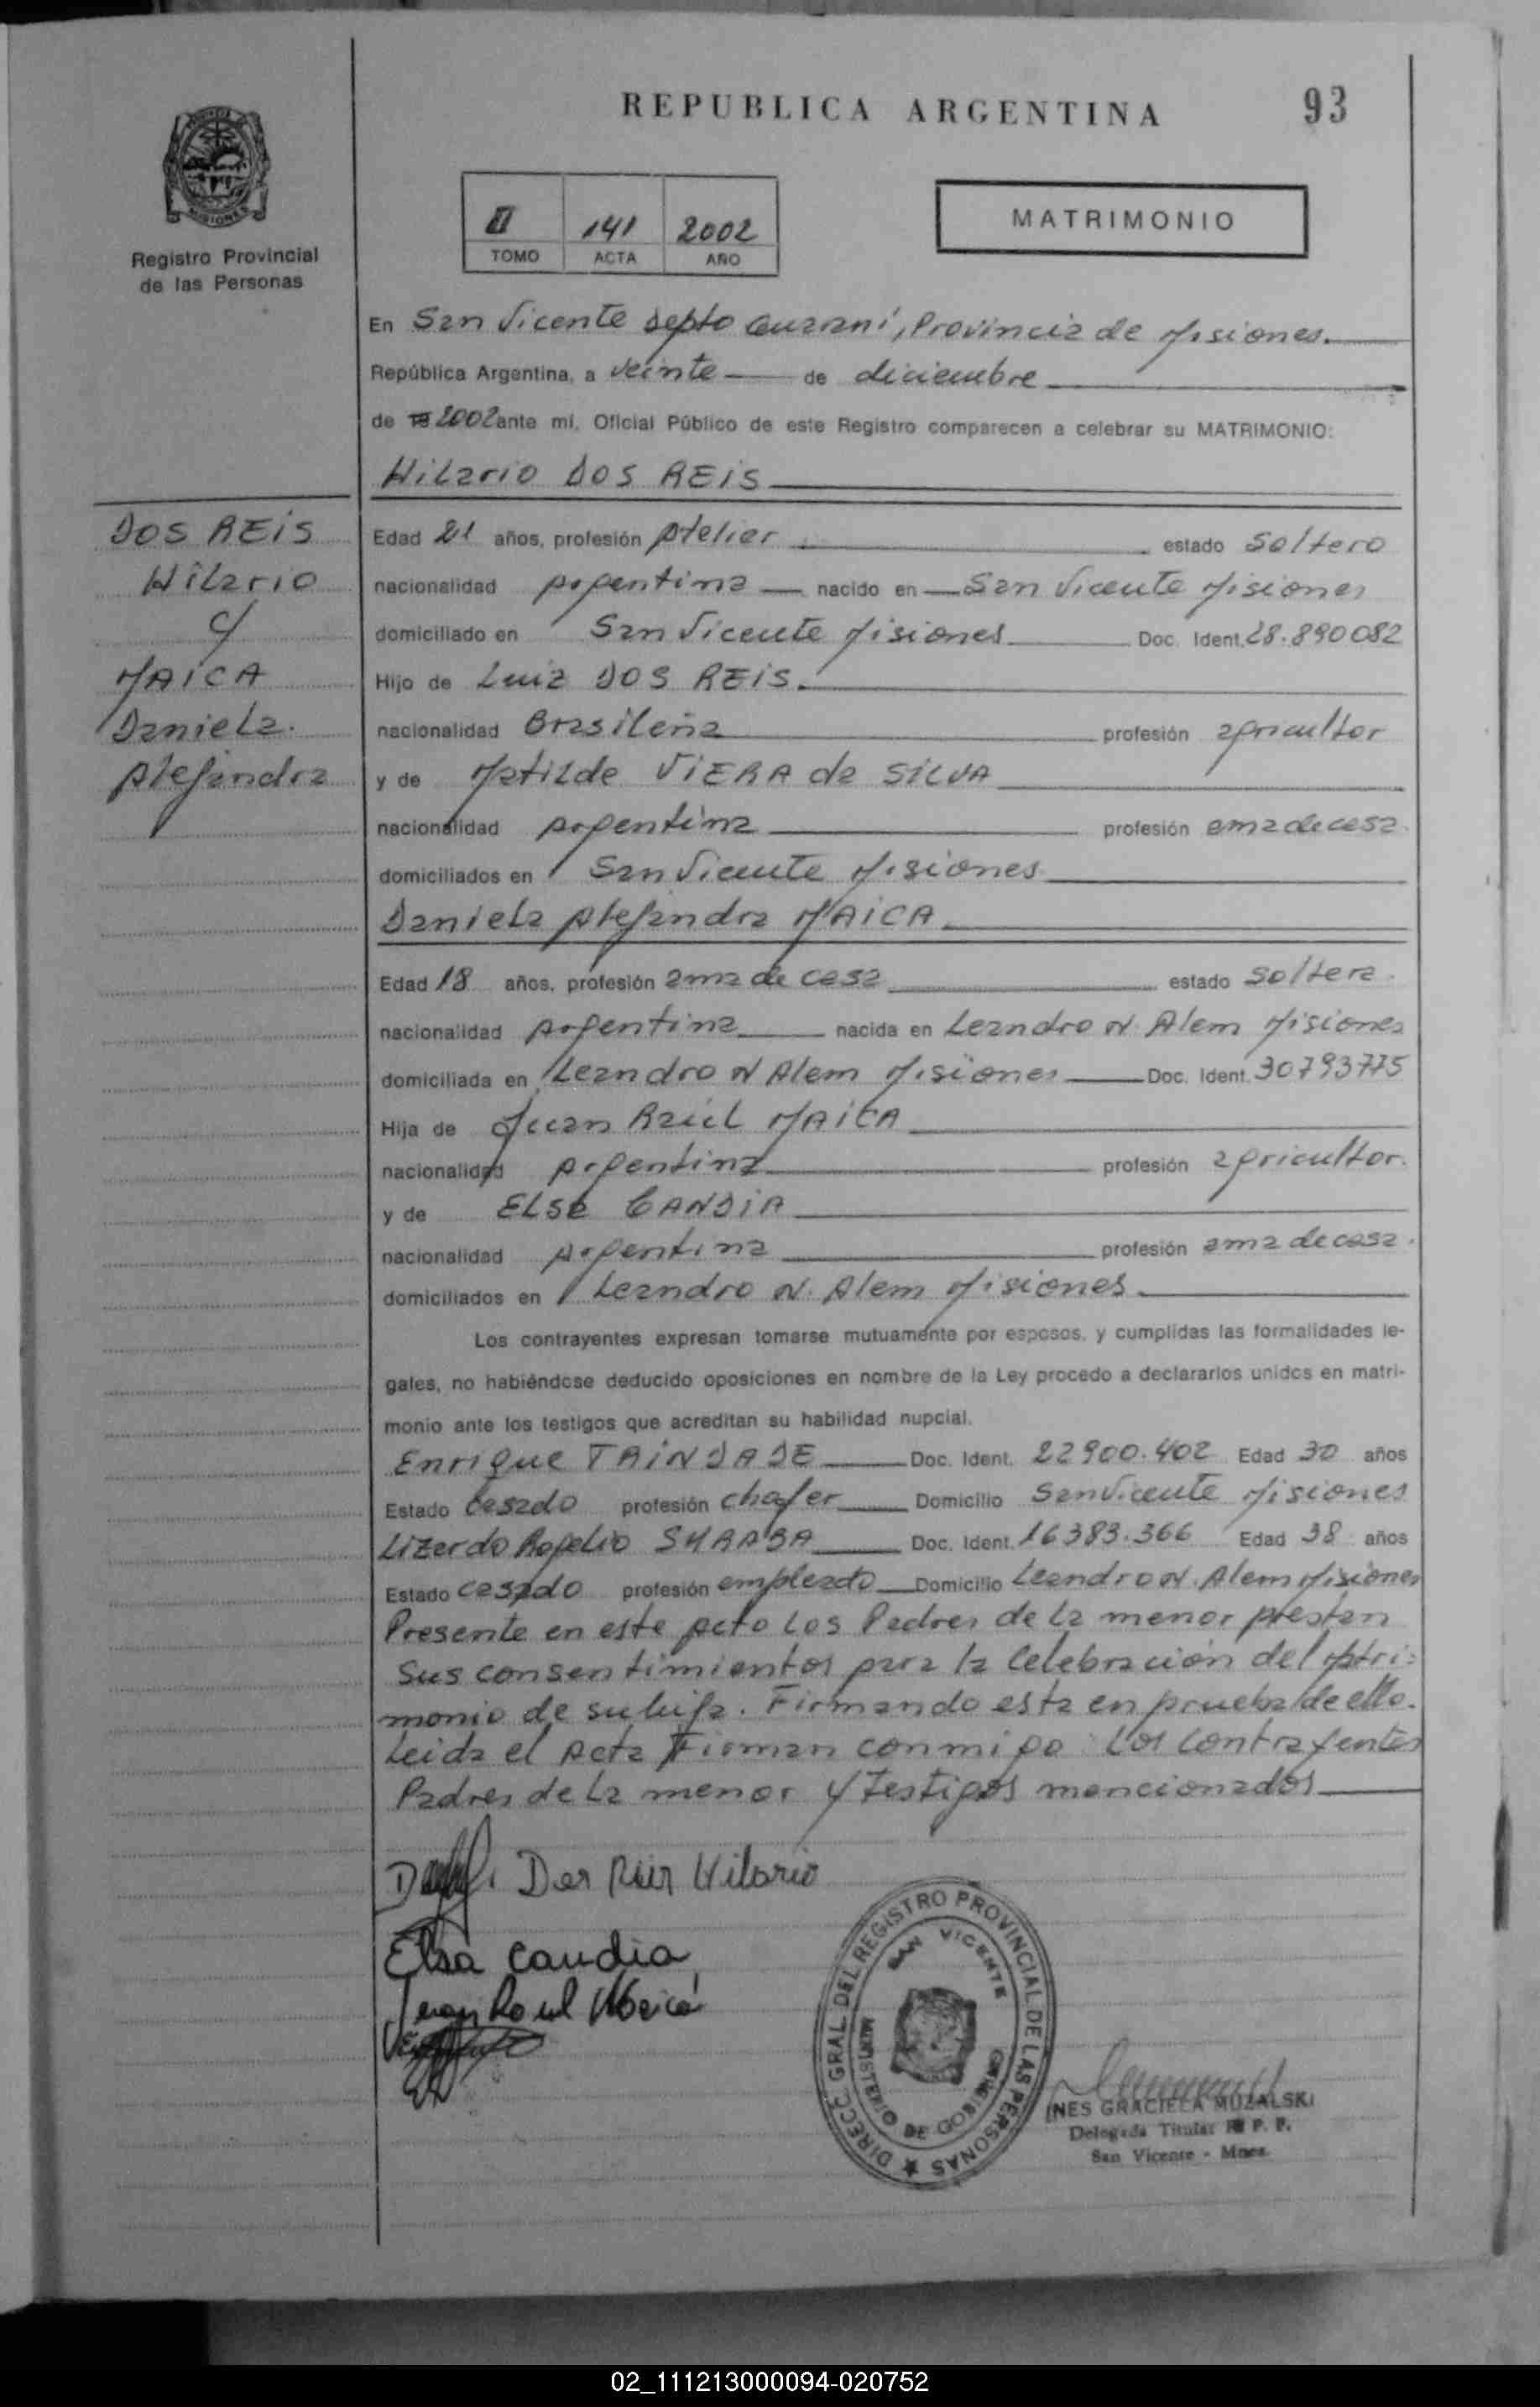 REPUBLICA ARGENTINA
93
MISIONES
Registro Provincial
de las Personas
II 141 2002
TOMO ACTA AÑO
MATRIMONIO
En San Vicente Depto Guaraní, Provincia de Misiones.
República Argentina, a veinte de diciembre
de 19 2002 ante mí, Oficial Público de este Registro comparecen a celebrar su MATRIMONIO:
Hilario DOS REIS
DOS REIS
Hilario
c/
MAICA
Daniela.
Alejandra
Edad 21 años, profesión estado Soltero
nacionalidad Argentina nacido en San Vicente Misiones
domiciliado en San Vicente Misiones Doc. Ident. 28.890082
Hijo de Luiz DOS REIS.
nacionalidad Brasileña profesión agricultor
y de Matilde VIERA da SILVA
nacionalidad Argentina profesión ama de casa.
domiciliados en San Vicente Misiones
Daniela Alejandra MAICA.
Edad 18 años, profesión ama de casa estado Soltera.
nacionalidad Argentina nacida en Leandro N. Alem Misiones
domiciliada en Leandro N Alem Misiones Doc. Ident. 30793775
Hija de Juan Raúl MAICA
nacionalidad Argentina profesión agricultor.
y de ELSA CANDIA
nacionalidad Argentina profesión ama de casa.
domiciliados en Leandro N. Alem Misiones.
Los contrayentes expresan tomarse mutuamente por esposos, y cumplidas las formalidades le-
gales, no habiéndose deducido oposiciones en nombre de la Ley procedo a declararlos unidos en matri-
monio ante los testigos que acreditan su habilidad nupcial.
Enrique TRINDADE Doc. Ident. 22900.402 Edad 30 años
Estado Casado profesión chofer Domicilio San Vicente Misiones
Lizardo Rogelio Doc. Ident. 16383.366 Edad 38 años
Estado Casado profesión empleado Domicilio Leandro N. Alem Misiones
Presente en este Acto Los Padres de la menor prestan
sus consentimientos para la Celebración del Matri=
monio de su hija. Firmando esta en prueba de ello.
Leida el Acta Firman conmigo Los Contrayentes
Padres de La menor y Testigos mencionados
Dos Reis Hilario
Elsa Candia
Juan Raul Maica
DIRECC. GRAL. DEL REGISTRO PROVINCIAL DE LAS PERSONAS
SAN VICENTE
MINISTERIO DE GOBIERNO
INES GRACIELA MUZALSKI
Delegada Titular R. P. P.
San Vicente - Mnes.
02_111213000094-020752